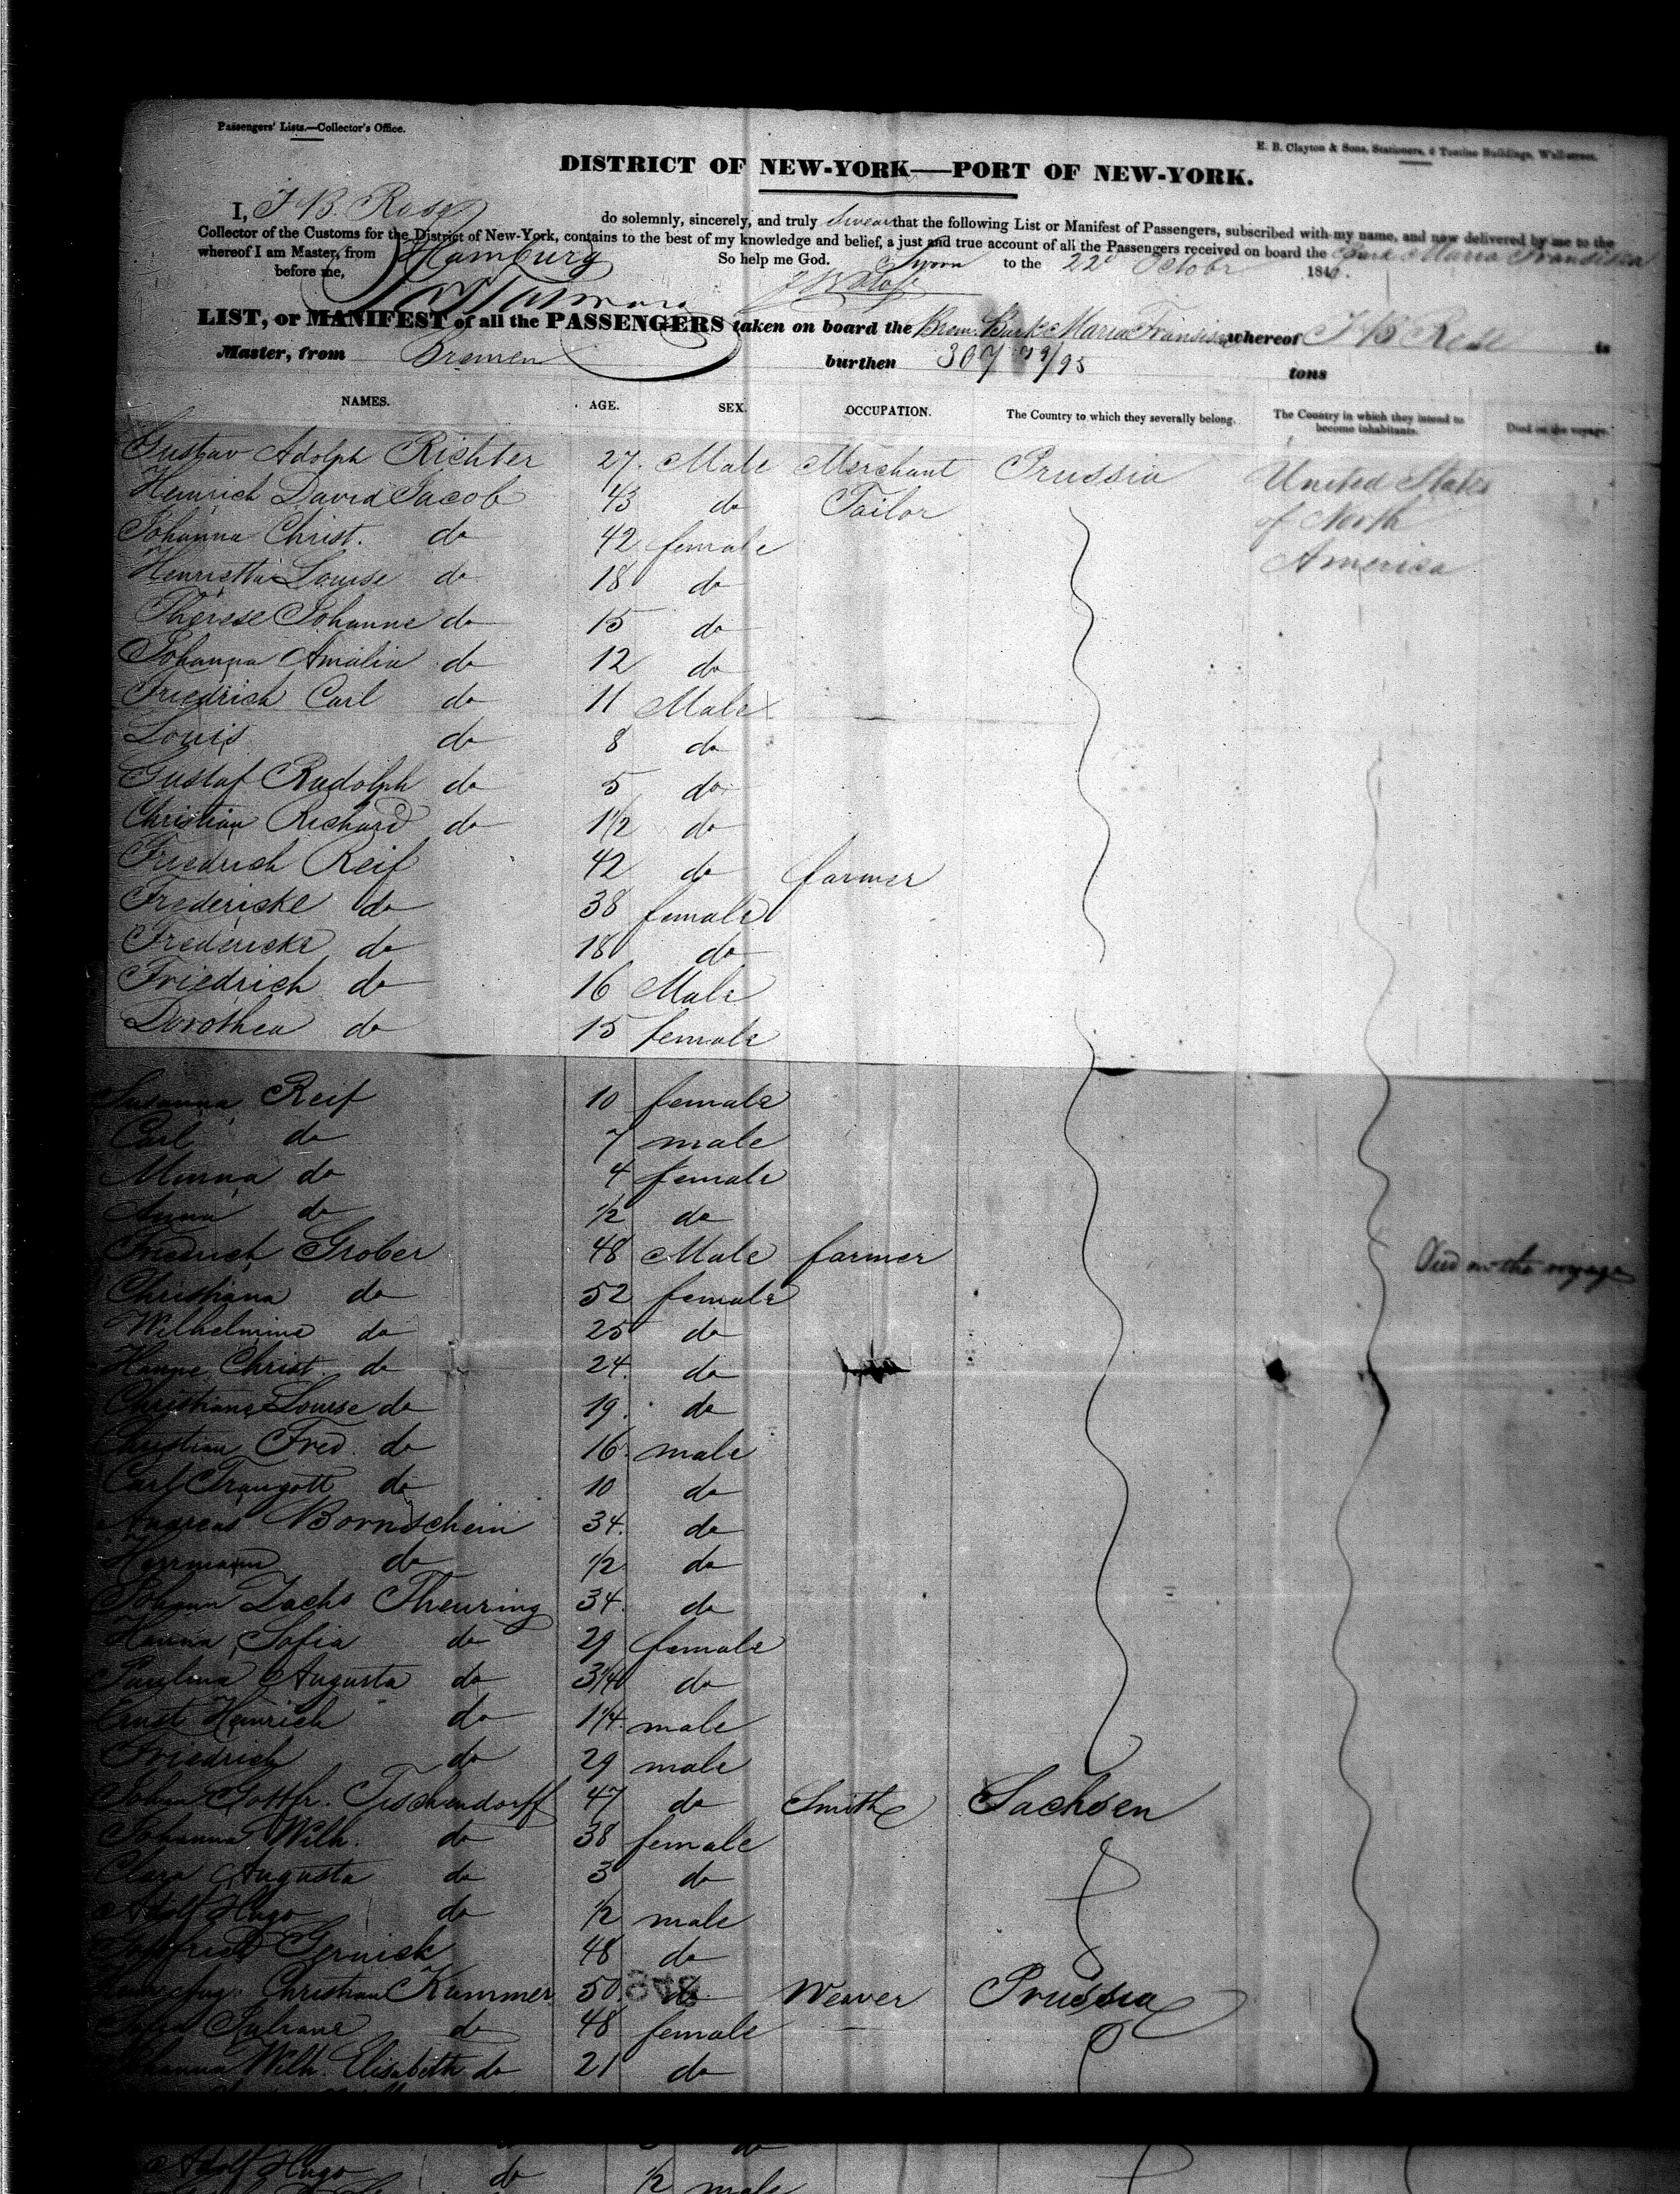 Passengers' Lists.—Collector's Office.
E. B. Clayton & Sons, Stationers, 6 Tontine Buildings, Wall-street.
DISTRICT OF NEW-YORK—PORT OF NEW-YORK.
I, J B. Rose do solemnly, sincerely, and truly swear that the following List or Manifest of Passengers, subscribed with my name, and now delivered by me to the
Collector of the Customs for the District of New-York, contains to the best of my knowledge and belief, a just and true account of all the Passengers received on board the Bark Maria Fransisca
whereof I am Master, from Hamburg So help me God. Sworn to the 22d October 184
before me,
LIST, or MANIFEST of all the PASSENGERS taken on board the Brem. Bark Maria Fransisca whereof J B Rose is
Master, from Bremen burthen 307 /95 tons
NAMES. AGE. SEX. OCCUPATION. The Country to which they severally belong. The Country in which they intend to become inhabitants. Died on the voyage.
Gustav Adolph Richter 27. Male Merchant Prussia United States
Heinrich David Jacob 43 do Tailor of North
Johanna Christ. do 42 female America
Henrietta Louise do 18 do
Therese Johanne do 15 do
Johanna Amalia do 12 do
Friedrich Carl do 11 Male
Louis do 8 do
Gustaf Rudolph do 5 do
Christian Richard do 1½ do
Friedrich Reif 42 do farmer
Fredericke do 38 female
Fredericke do 18 do
Friedrich do 16 Male
Dorothea do 15 female
Susanna Reif 10 female
Carl do 7 male
Minna do 4 female
Anna do ½ do
Friedrich Grober 48 Male farmer Died on the voyage
Christiana do 52 female
Wilhelmine do 25 do
Hanne Christ. do 24. do
Christiane Louise do 19. do
Christian Fred. do 16. male
Carl Traugott do 10 do
Andreas Bornschein 34. do
Herrmann do ½ do
Johann Zachs Theuring 34. do
Hanna Sofia do 29 female
Paulina Augusta do 3¼ do
Ernst Heinrich do 1¼. male
Friedrich do 29 male
Johan Gottfr. Tischendorff 47 do Smith Sachsen
Johanna Wilh. do 38 female
Clara Augusta do 3 do
Adolf Hugo do ½ male
Gottfried Gernick 48 do
Christian Kummer 50. do Weaver Prussia
Juliane do 48 female
Johanna Wilh. Elisabeth do 21 do
do
Adolf Hugo do ½ male